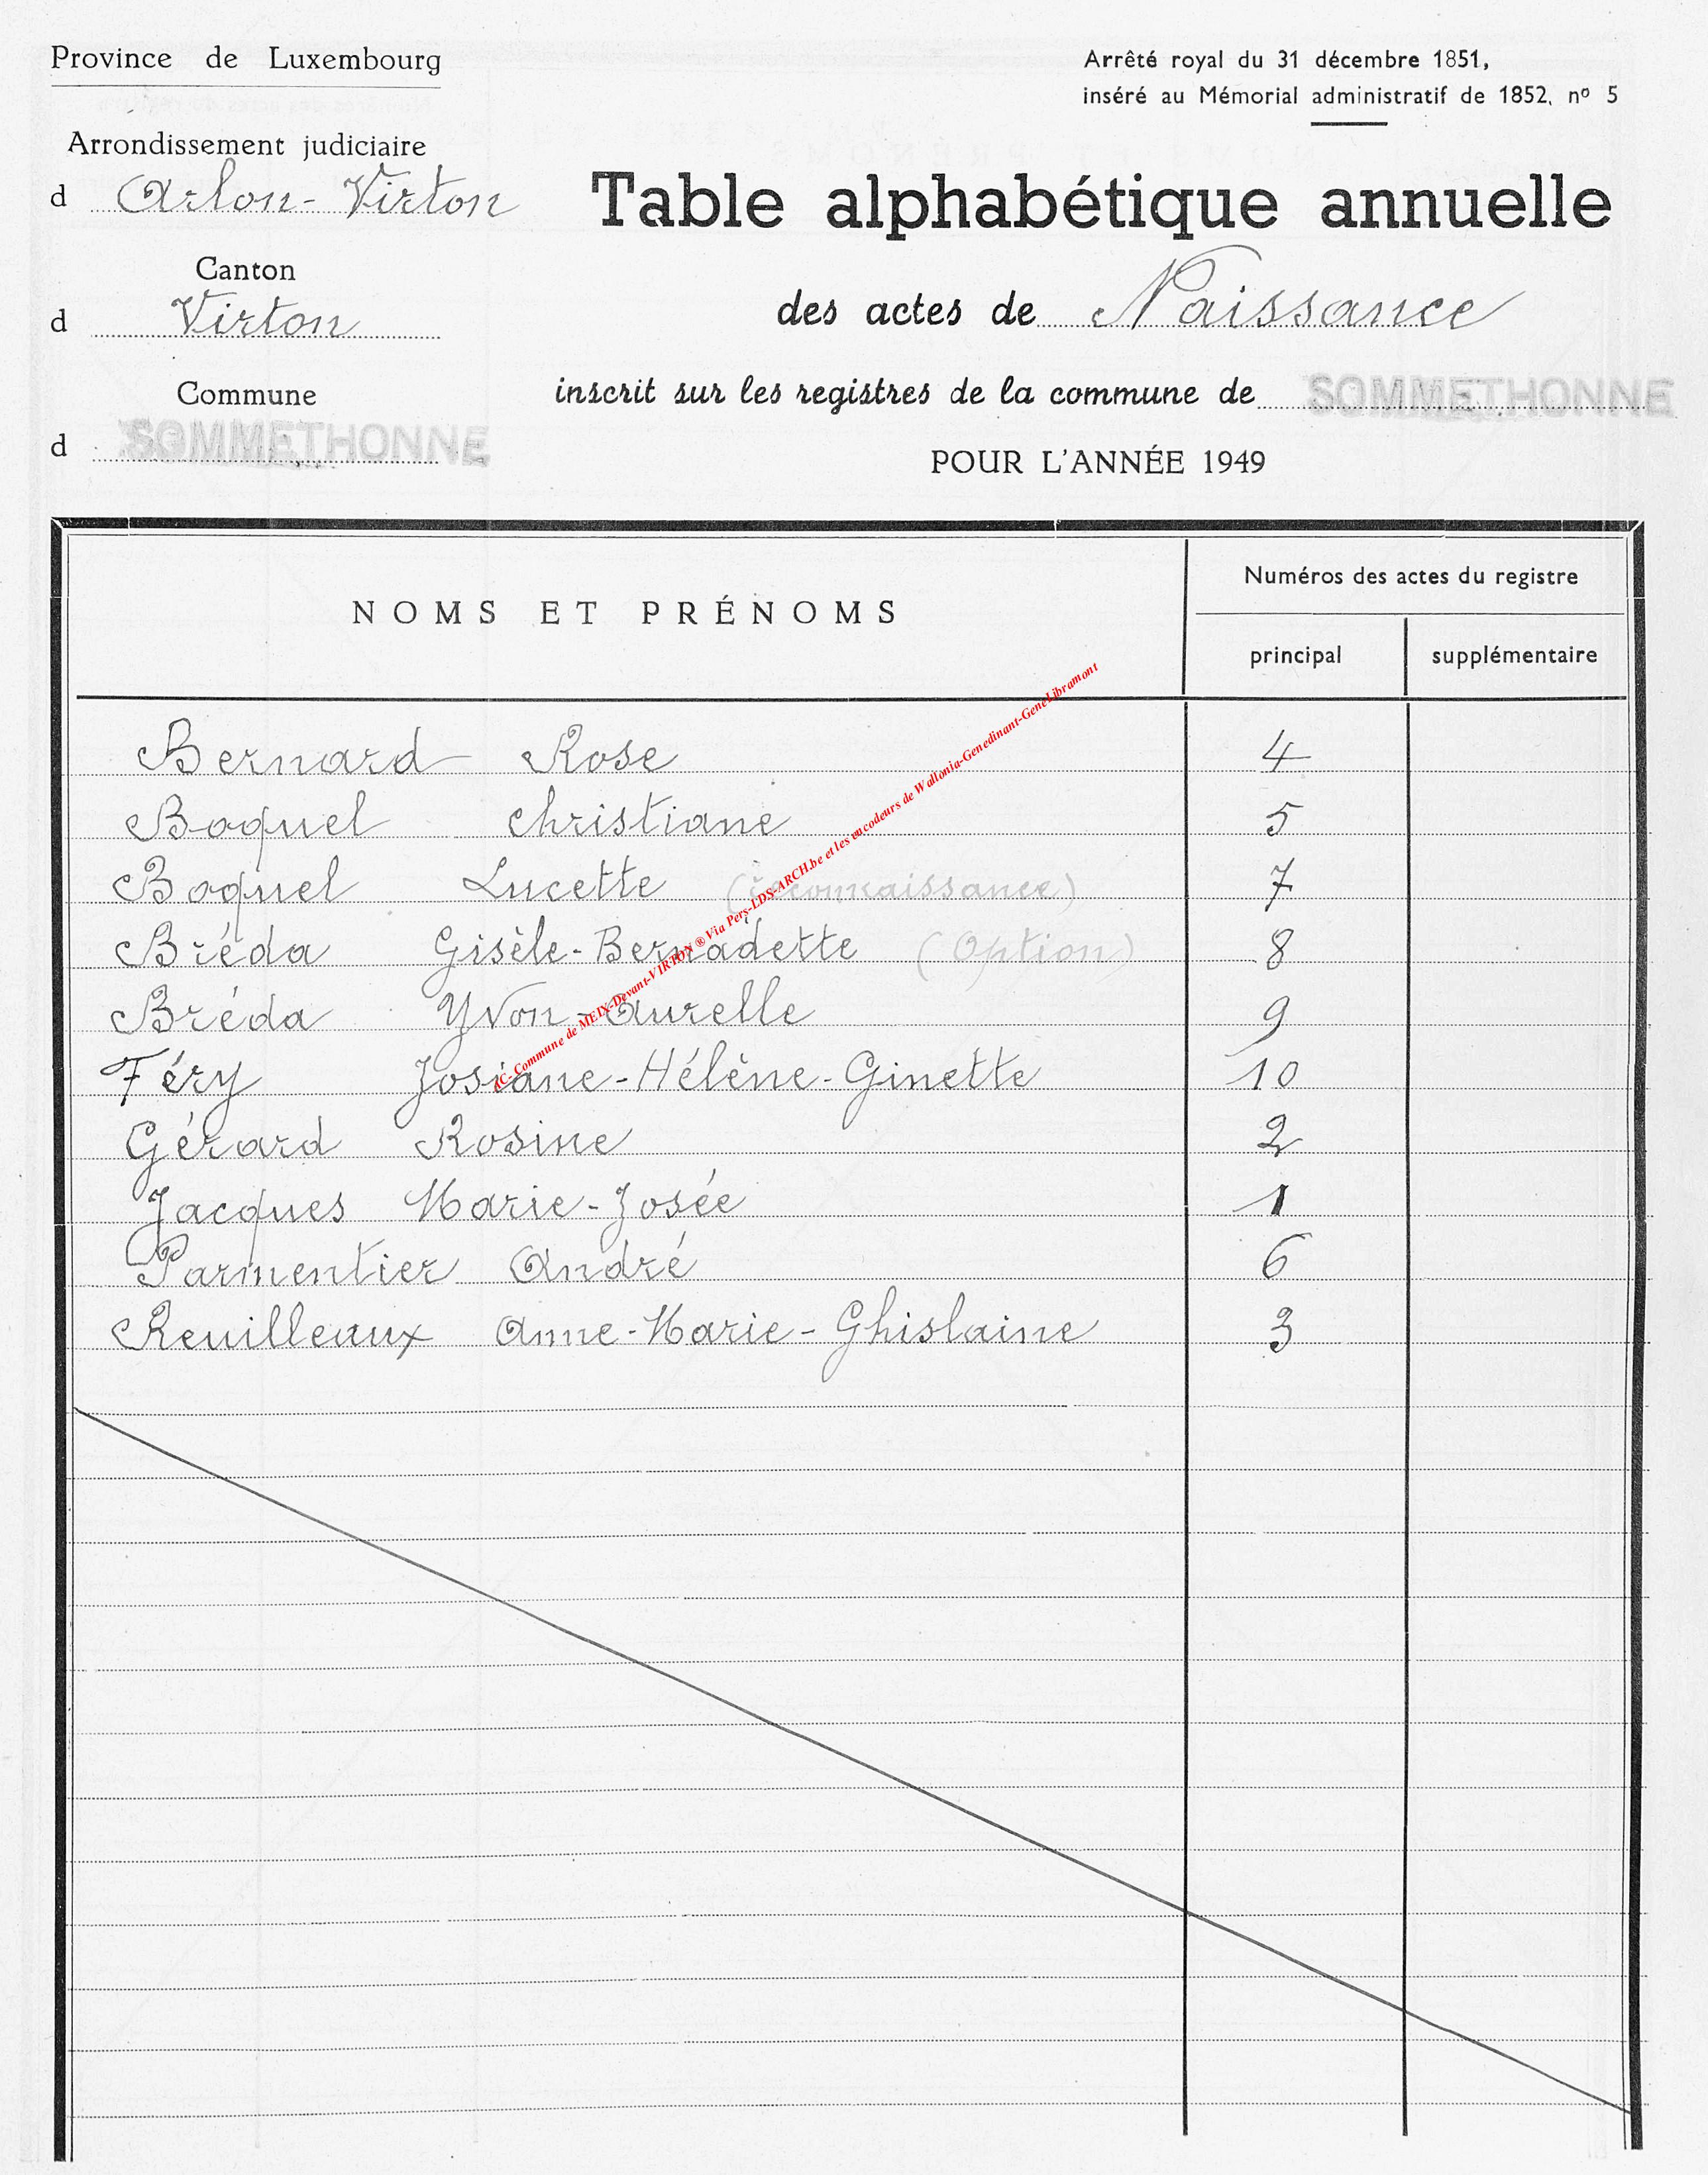 Province de Luxembourg
Arrêté royal du 31 décembre 1851,
inséré au Mémorial administratif de 1852, nº 5
Arrondissement judiciaire
d Arlon-Virton
Table alphabétique annuelle
Canton
d Virton
des actes de Naissance
Commune
inscrit sur les registres de la commune de SOMMETHONNE
d SOMMETHONNE
POUR L'ANNÉE 1949
NOMS ET PRÉNOMS
Numéros des actes du registre
principal
supplémentaire
Bernard Rose 4
Boquel Christiane 5
Boquel Lucette (reconnaissance) 7
Bréda Gisèle-Bernadette (Option) 8
Bréda Yvon-Aurelle 9
Féry Josiane-Hélène-Ginette 10
Gérard Rosine 2
Jacques Marie-Josée 1
Parmentier André 6
Reuilleaux Anne-Marie-Ghislaine 3
AC-Commune de MEIX-Devant-VIRTON ® Via Pers-LDS-ARCH.be et les encodeurs de Wallonia-Genedinant-GeneLibramont